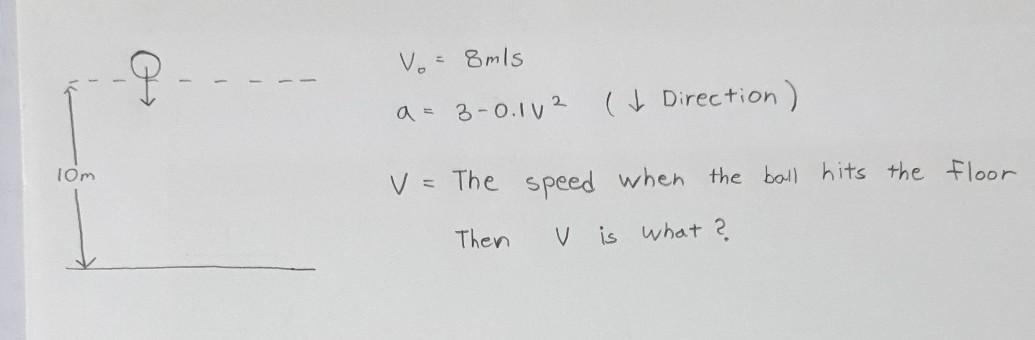 V₀ = 8m/s
a = 3-0.1v² (↓ Direction)
10m
V = The speed when the ball hits the floor
Then V is what?